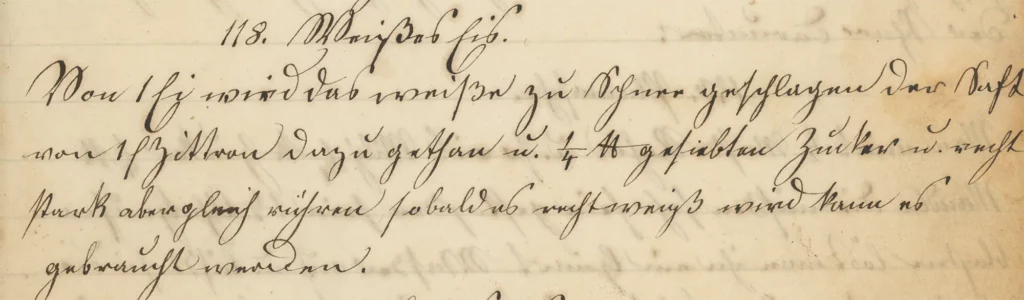 118. Weißes Eis.
Von 1 Ei wird das weiße zu Schnee geschlagen der Saft
von 1 Zittron dazu gethan u. ¼ ℔ gesiebten Zucker u. recht
stark aber gleich rühren sobald es recht weiß wird kann es
gebraucht werden.